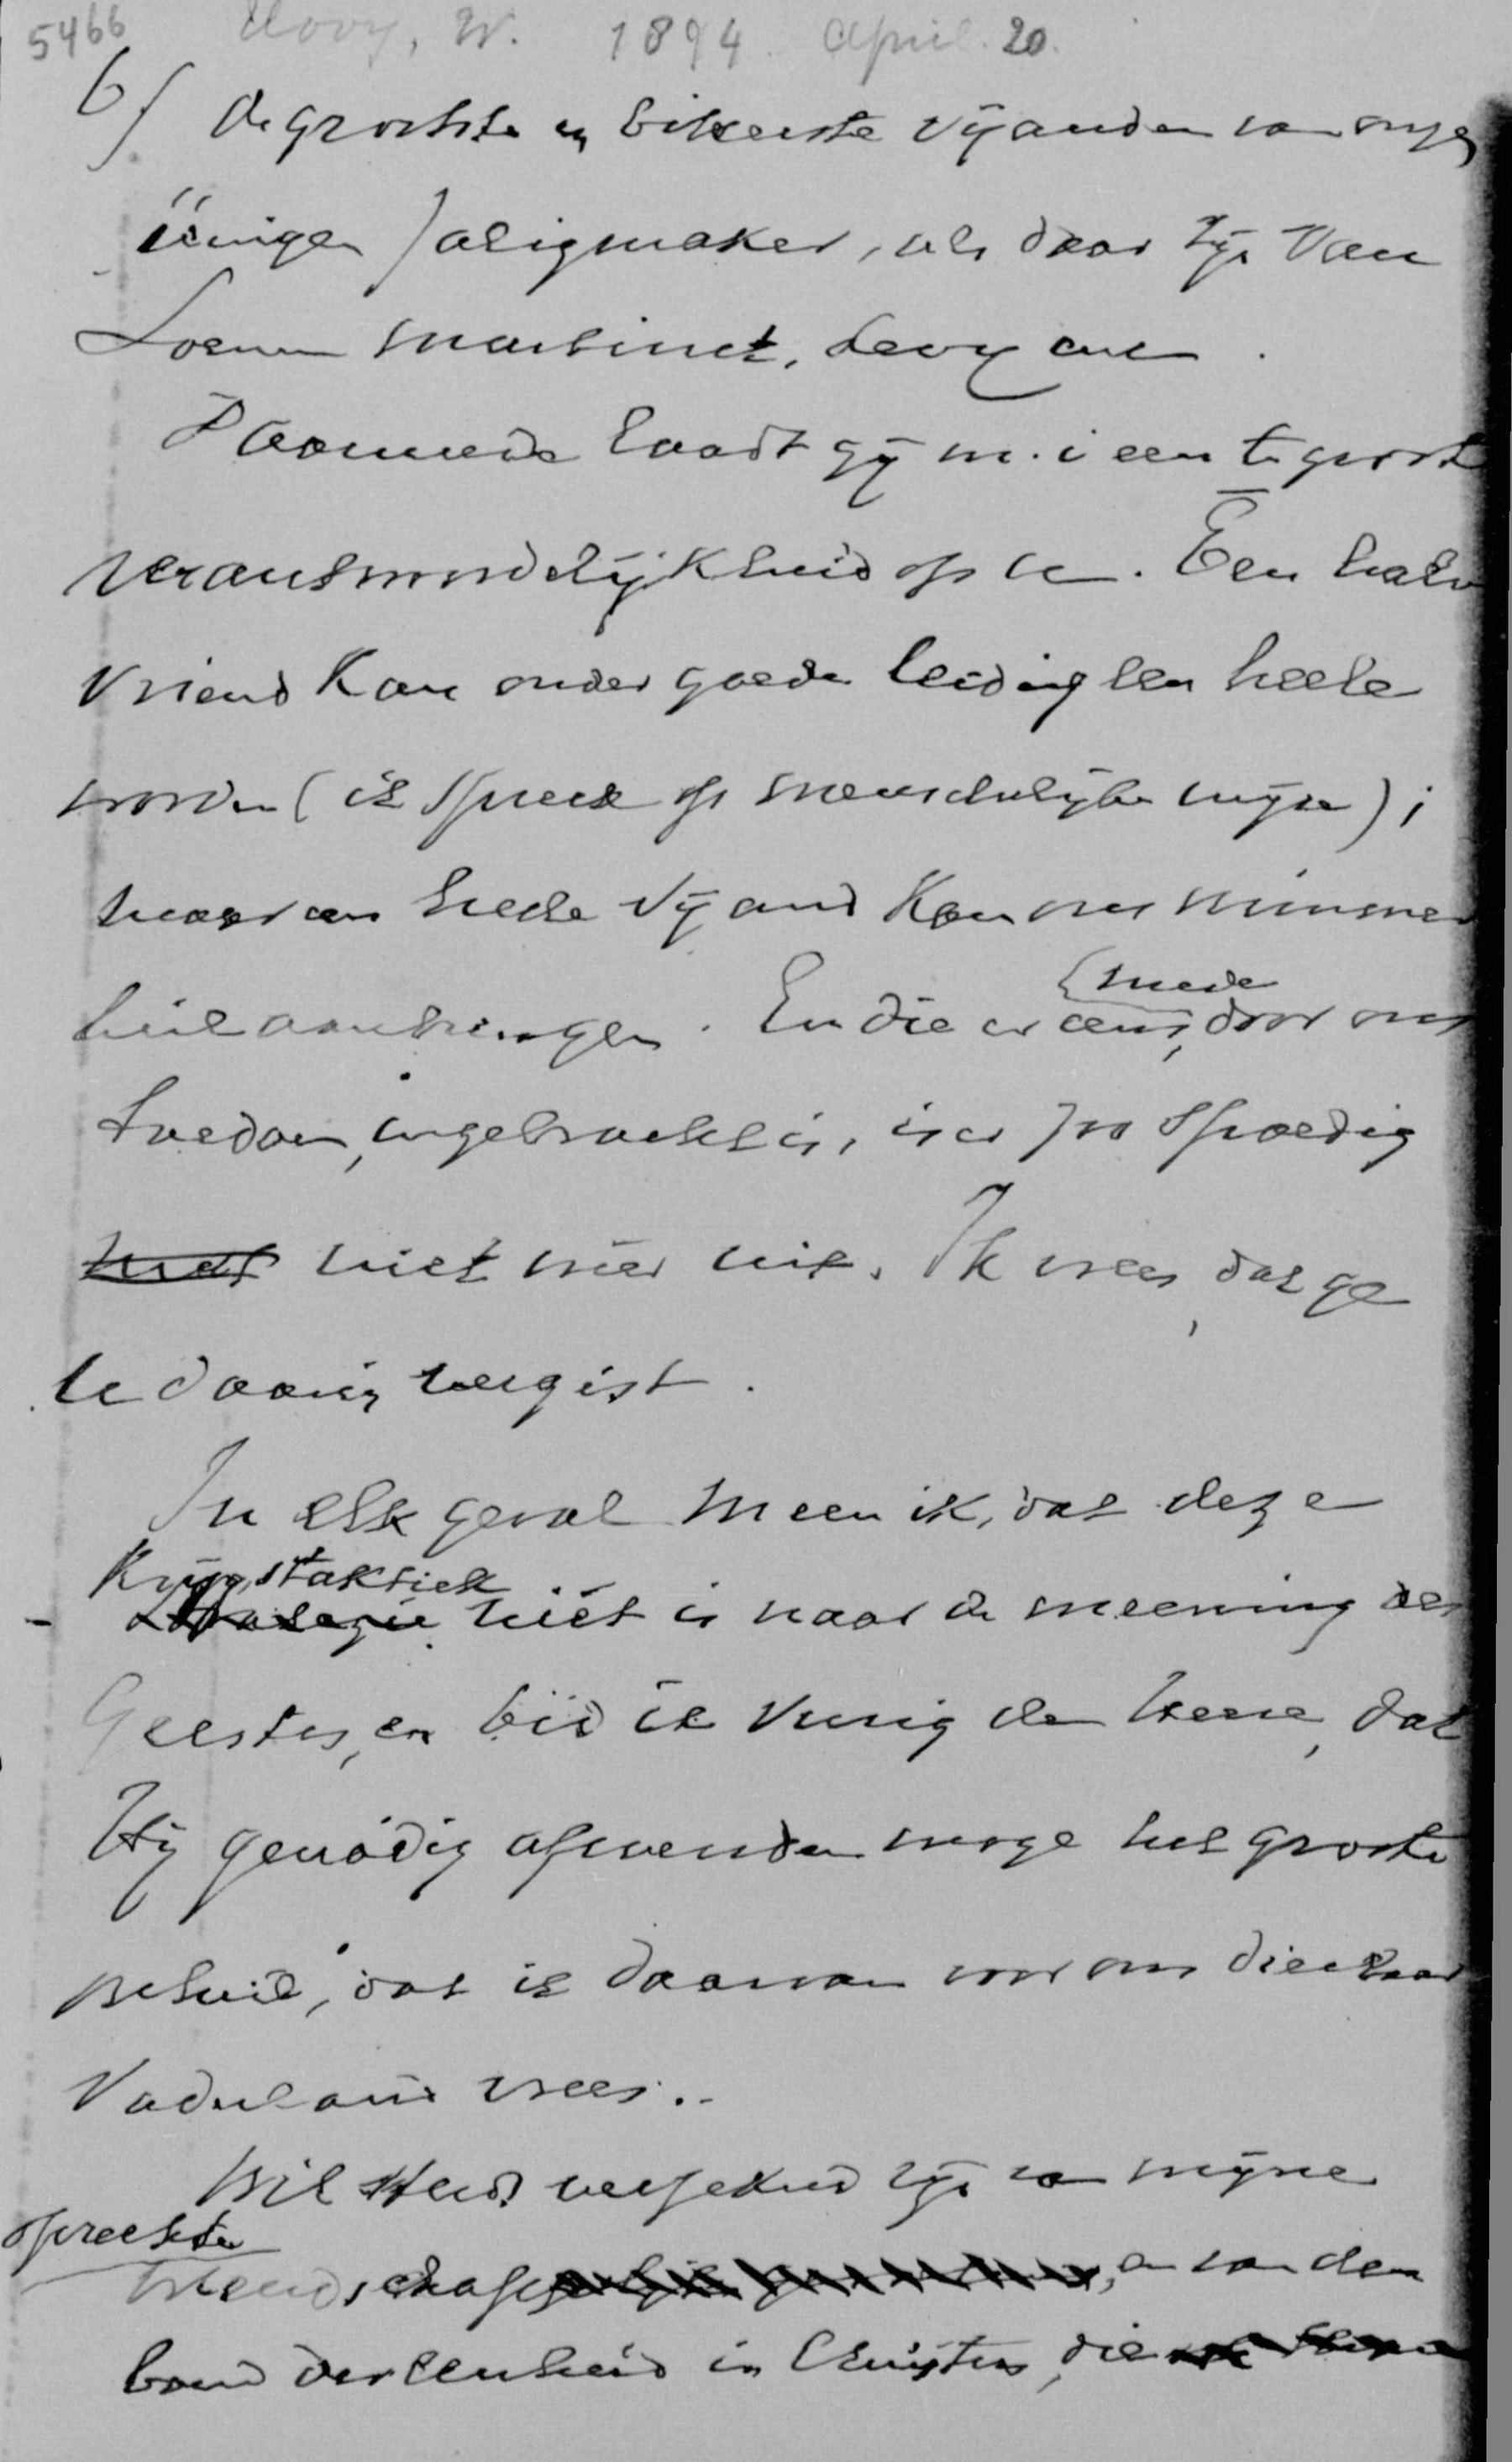 5466 Hovy, W. 1894 April. 20.
6/ de grootste en bitterste vijanden van onzen
éénigen Zaligmaker, als daar zijn Van
Loenen Martinet, Levy enz.
Daarmede laadt gij m.i een te groote
verantwoordelijkheid op u. Een halve
vriend kan onder goede leiding een heele
worden (ik spreek op menschelijke wijze);
maar een heele vijand kan ons nimmer
heil aanbrengen. En die er eens, mede door ons
toedoen, ingebracht is, is er zoo spoedig
niet meer uit. Ik vrees, dat ge
u daarin vergist.
In elk geval meen ik, dat deze
krijgstaktiek niet is naar de meening des
Geestes, en bid ik vurig den Heere, dat
Hij genadig afwenden moge het groote
onheil, dat ik daarvan voor ons dierbaar
Vaderland vrees.
Wil steeds verzekerd zijn van mijne
oprechte
vriendschap, en van den
band der eenheid in Christus, die